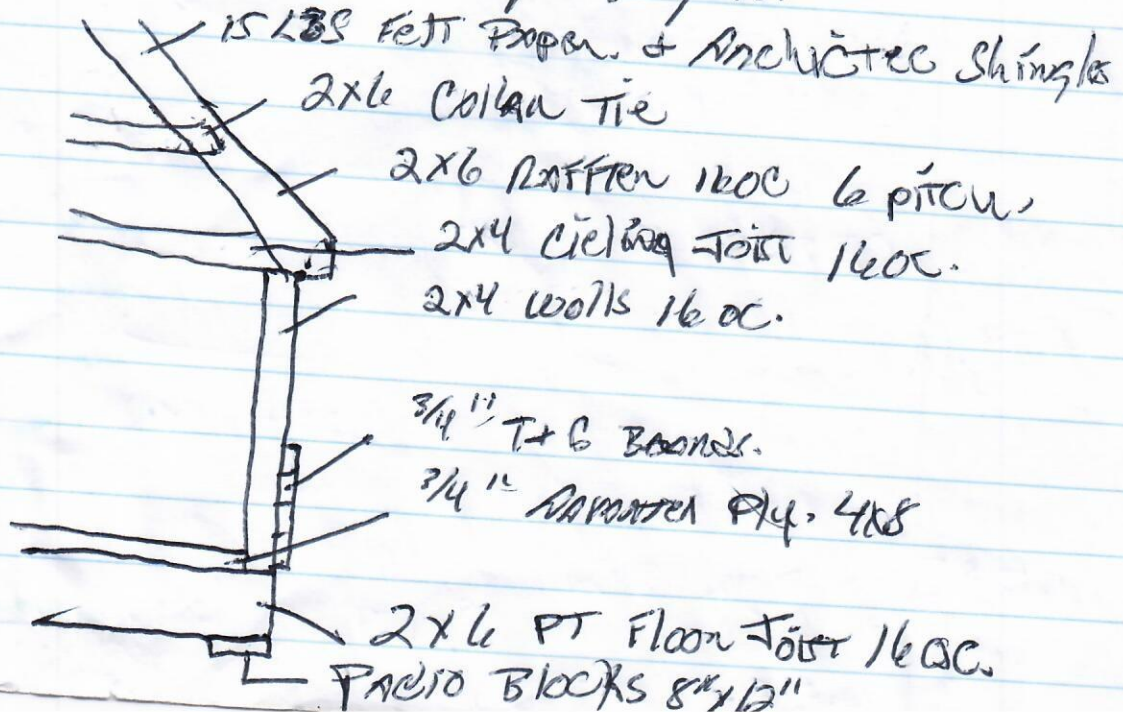 15 LBS Felt Paper. & Architec Shingles
2x6 Collar Tie
2x6 Raffter 16OC 6 pitch,
2x4 Cieling Joist 16OC.
2x4 Walls 16 OC.
3/4" T+G Boards.
3/4" Ply. 4x8
2x6 PT Floor Joist 16 OC.
Padio Blocks 8"x12"